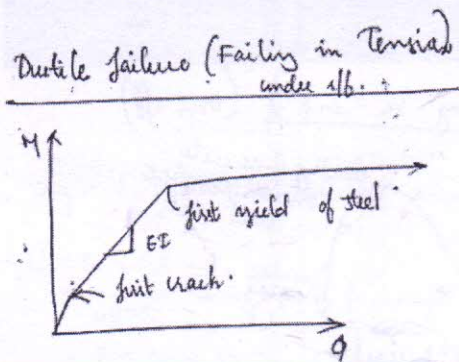 Ductile failure (Failing in Tension)
under r/f.
M
first yield of steel.
EI
first crack.